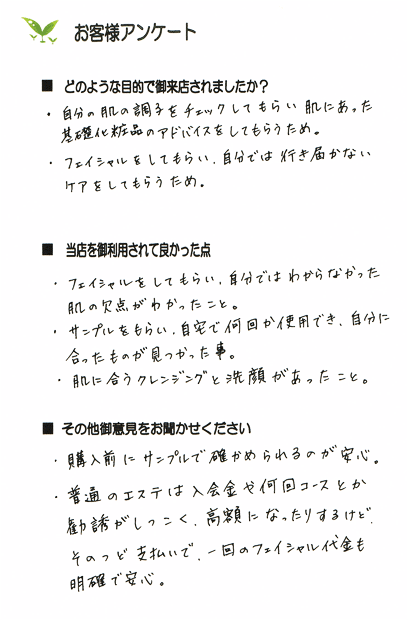 お客様アンケート
■ どのような目的で御来店されましたか？
・自分の肌の調子をチェックしてもらい 肌にあった
基礎化粧品のアドバイスをしてもらうため。
・フェイシャルをしてもらい、自分では 行き届かない
ケアをしてもらうため。
■ 当店を御利用されて良かった点
・フェイシャルをしてもらい、自分では わからなかった
肌の欠点がわかったこと。
・サンプルをもらい、自宅で何回か使用でき、自分に
合ったものが見つかった事。
・肌に合うクレンジングと洗顔があったこと。
■ その他御意見をお聞かせください
・購入前にサンプルで確かめられるのが安心。
・普通のエステは入会金や何回コースとか
勧誘がしつこく、高額になったりするけど、
そのつど支払いで、一回のフェイシャル代金も
明確で安心。